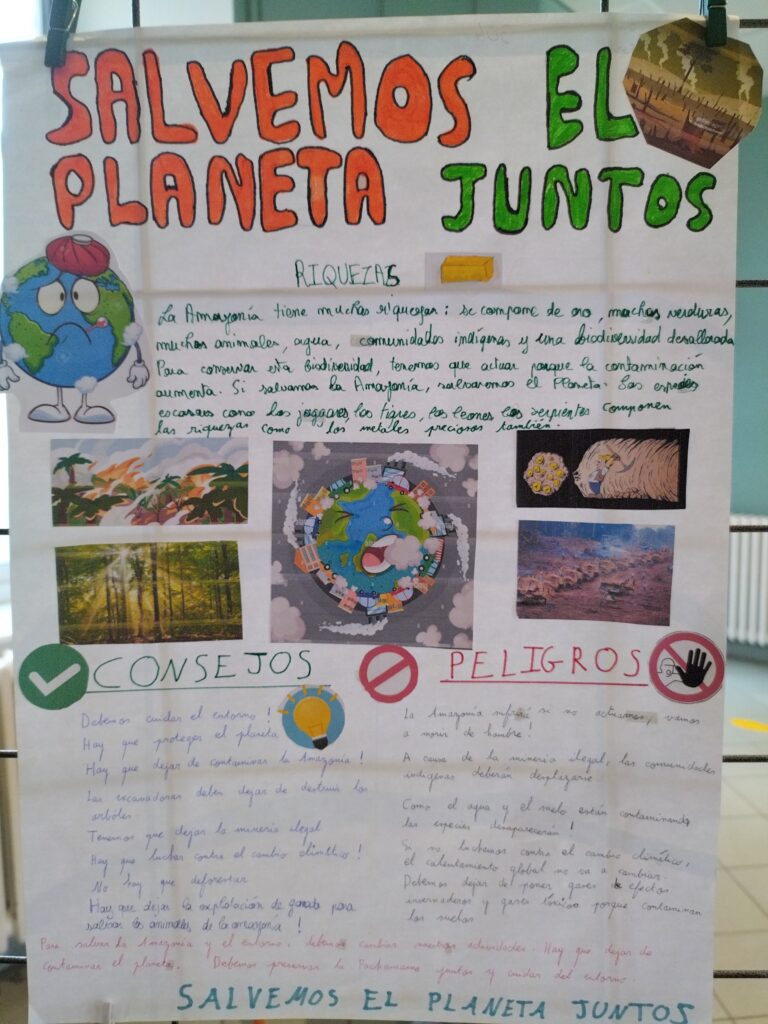 SALVEMOS EL
PLANETA JUNTOS
RIQUEZAS
La Amazonía tiene muchas riquezas : se compome de oro, muchas verduras,
muchos animales, agua, comunidades indígenas y una biodiversidad desallorada
Para conservar esta Biodiversidad, tenemos que actuar porque la contaminación
aumenta. Si salvamos la Amazonía, salvaremos el Planeta. Las especies
escasas como los jaggares los tigres, los leones los serpientes componen
las riquezas como los metales preciosos también.
CONSEJOS
Debemos cuidar el entorno !
Hay que proteger el planeta
Hay que dejar de contaminar la Amazonía !
Las excavadoras deben dejar de destruir los
arbóles.
Tenemos que dejar la minería ilegal
Hay que luchar contra el cambio climático !
No hay que deforestar
Hay que dejar la explotación de ganado para
salvar los animales de la amazonía !
PELIGROS
La Amazonía sufriré si no actuamos, vamos
a morir de hambre !
A causa de la minería ilegal, las comunidades
indígenas deberan desplazarse
Como el agua y el suelo están contaminando
las especies desaparecerán !
Si no luchemos contra el cambio climático,
el calentamiento global no va a cambiar.
Debemos dejar de poner gases de efectos
invernaderos y gases tóxicos porque contaminan
los suelos
Para salvar la Amazonía y el entorno, debemos cambiar nuestras actividades. Hay que dejar de
contaminar el planeta. Debemos preservar la Pachamama juntos y cuidar del entorno.
SALVEMOS EL PLANETA JUNTOS